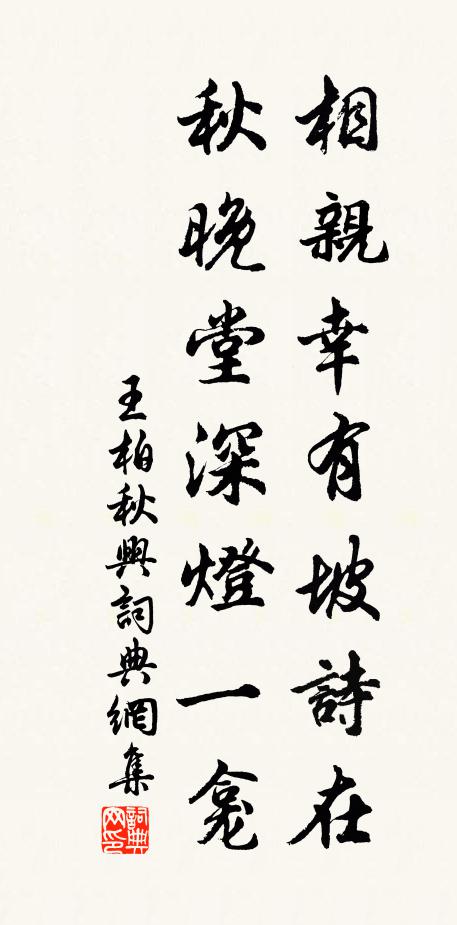 相親幸有坡詩在
秋晚堂深燈一龛
王柏秋興詞典網集
詞典网印